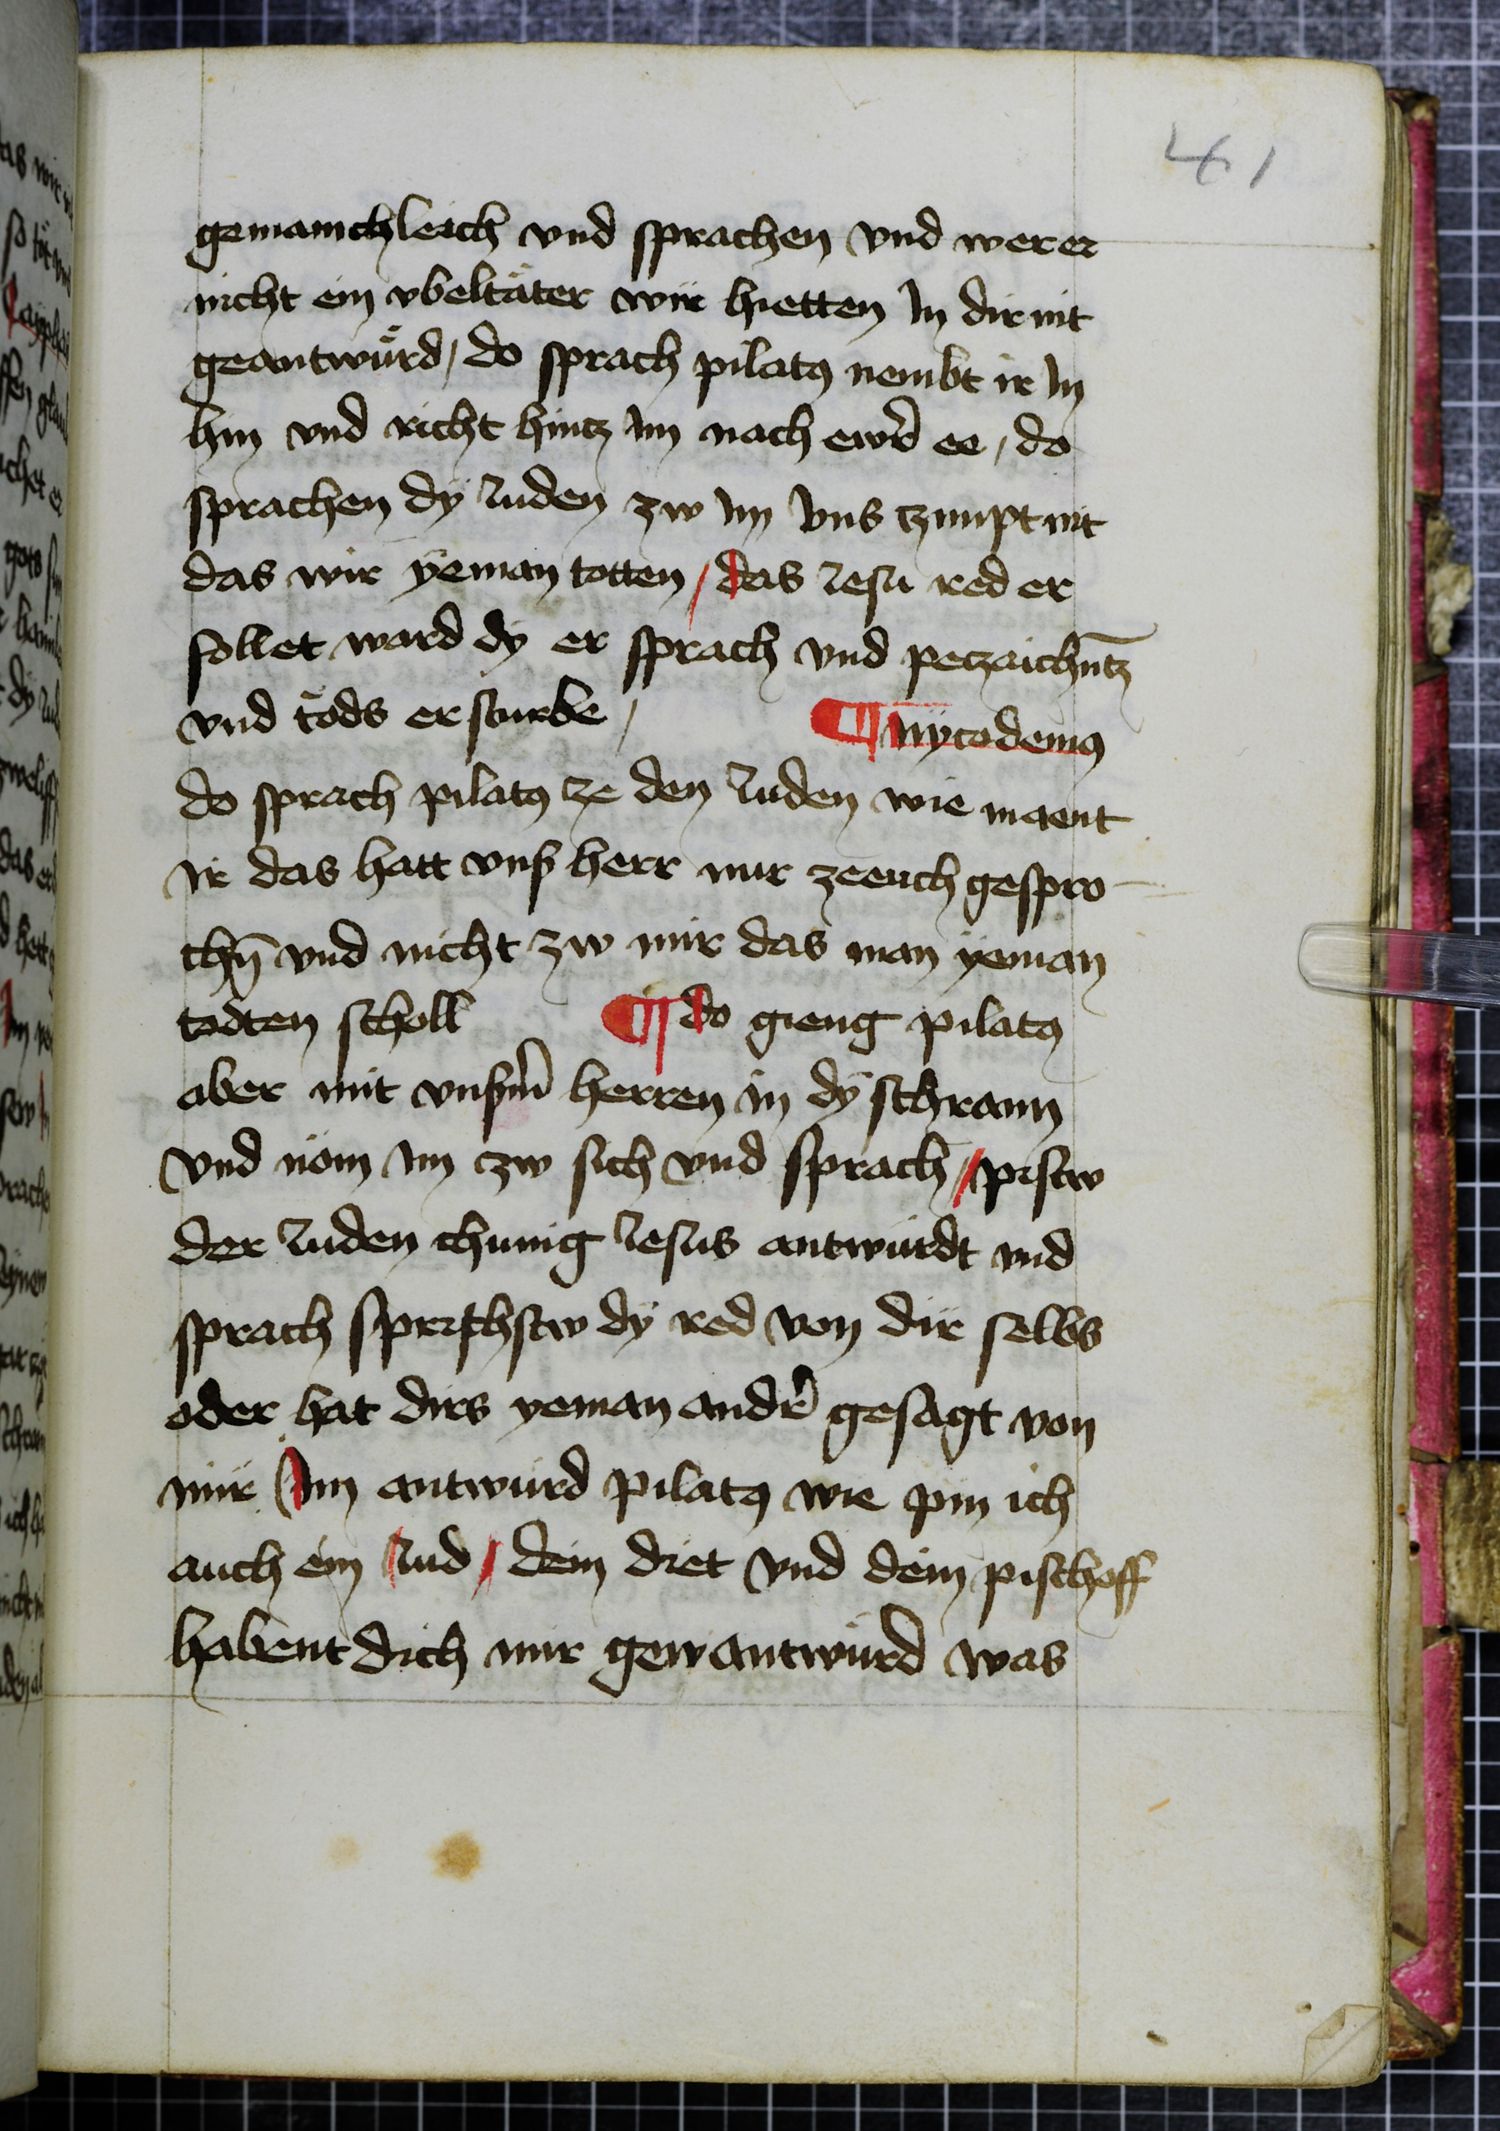 41
gemainchleich vnd sprachen vnd wer er
nicht ein vbeltäter wir hietten In dir nit
geantwürd / do sprach pilatꝰ nembt ir In
hin vnd richt hintz Im nach ewr̄ ee / do
sprachen dÿ Iuden zw Im vns czimpt nit
das wir ÿeman totten / das Iesu red er
follet ward dy er sprach vnd peczaichn̄tz
vnd töds er sturbe /
¶ nÿcodemꝰ
do sprach pilatꝰ ze den Iuden wie maent
Ir das hatt vnß herr nur ze euch gespro
chn̄ vnd nicht zw mir das man ÿeman
todten scholl ¶ do gieng pilatꝰ
aber mit vnßm̄ herren in dÿ schrann
vnd nöm Im zw sich vnd sprach // pistw
der Iuden chunig Iesus antwürdt vnd
sprach sprichstw dÿ red von dir selbs
oder hat dirs yeman andr̄ gesagt von
mir Im antwurd pilatꝰ wie pin ich
auch ein Iud / dein diet vnd dein pischoff
habent dich mir gewantwürd was